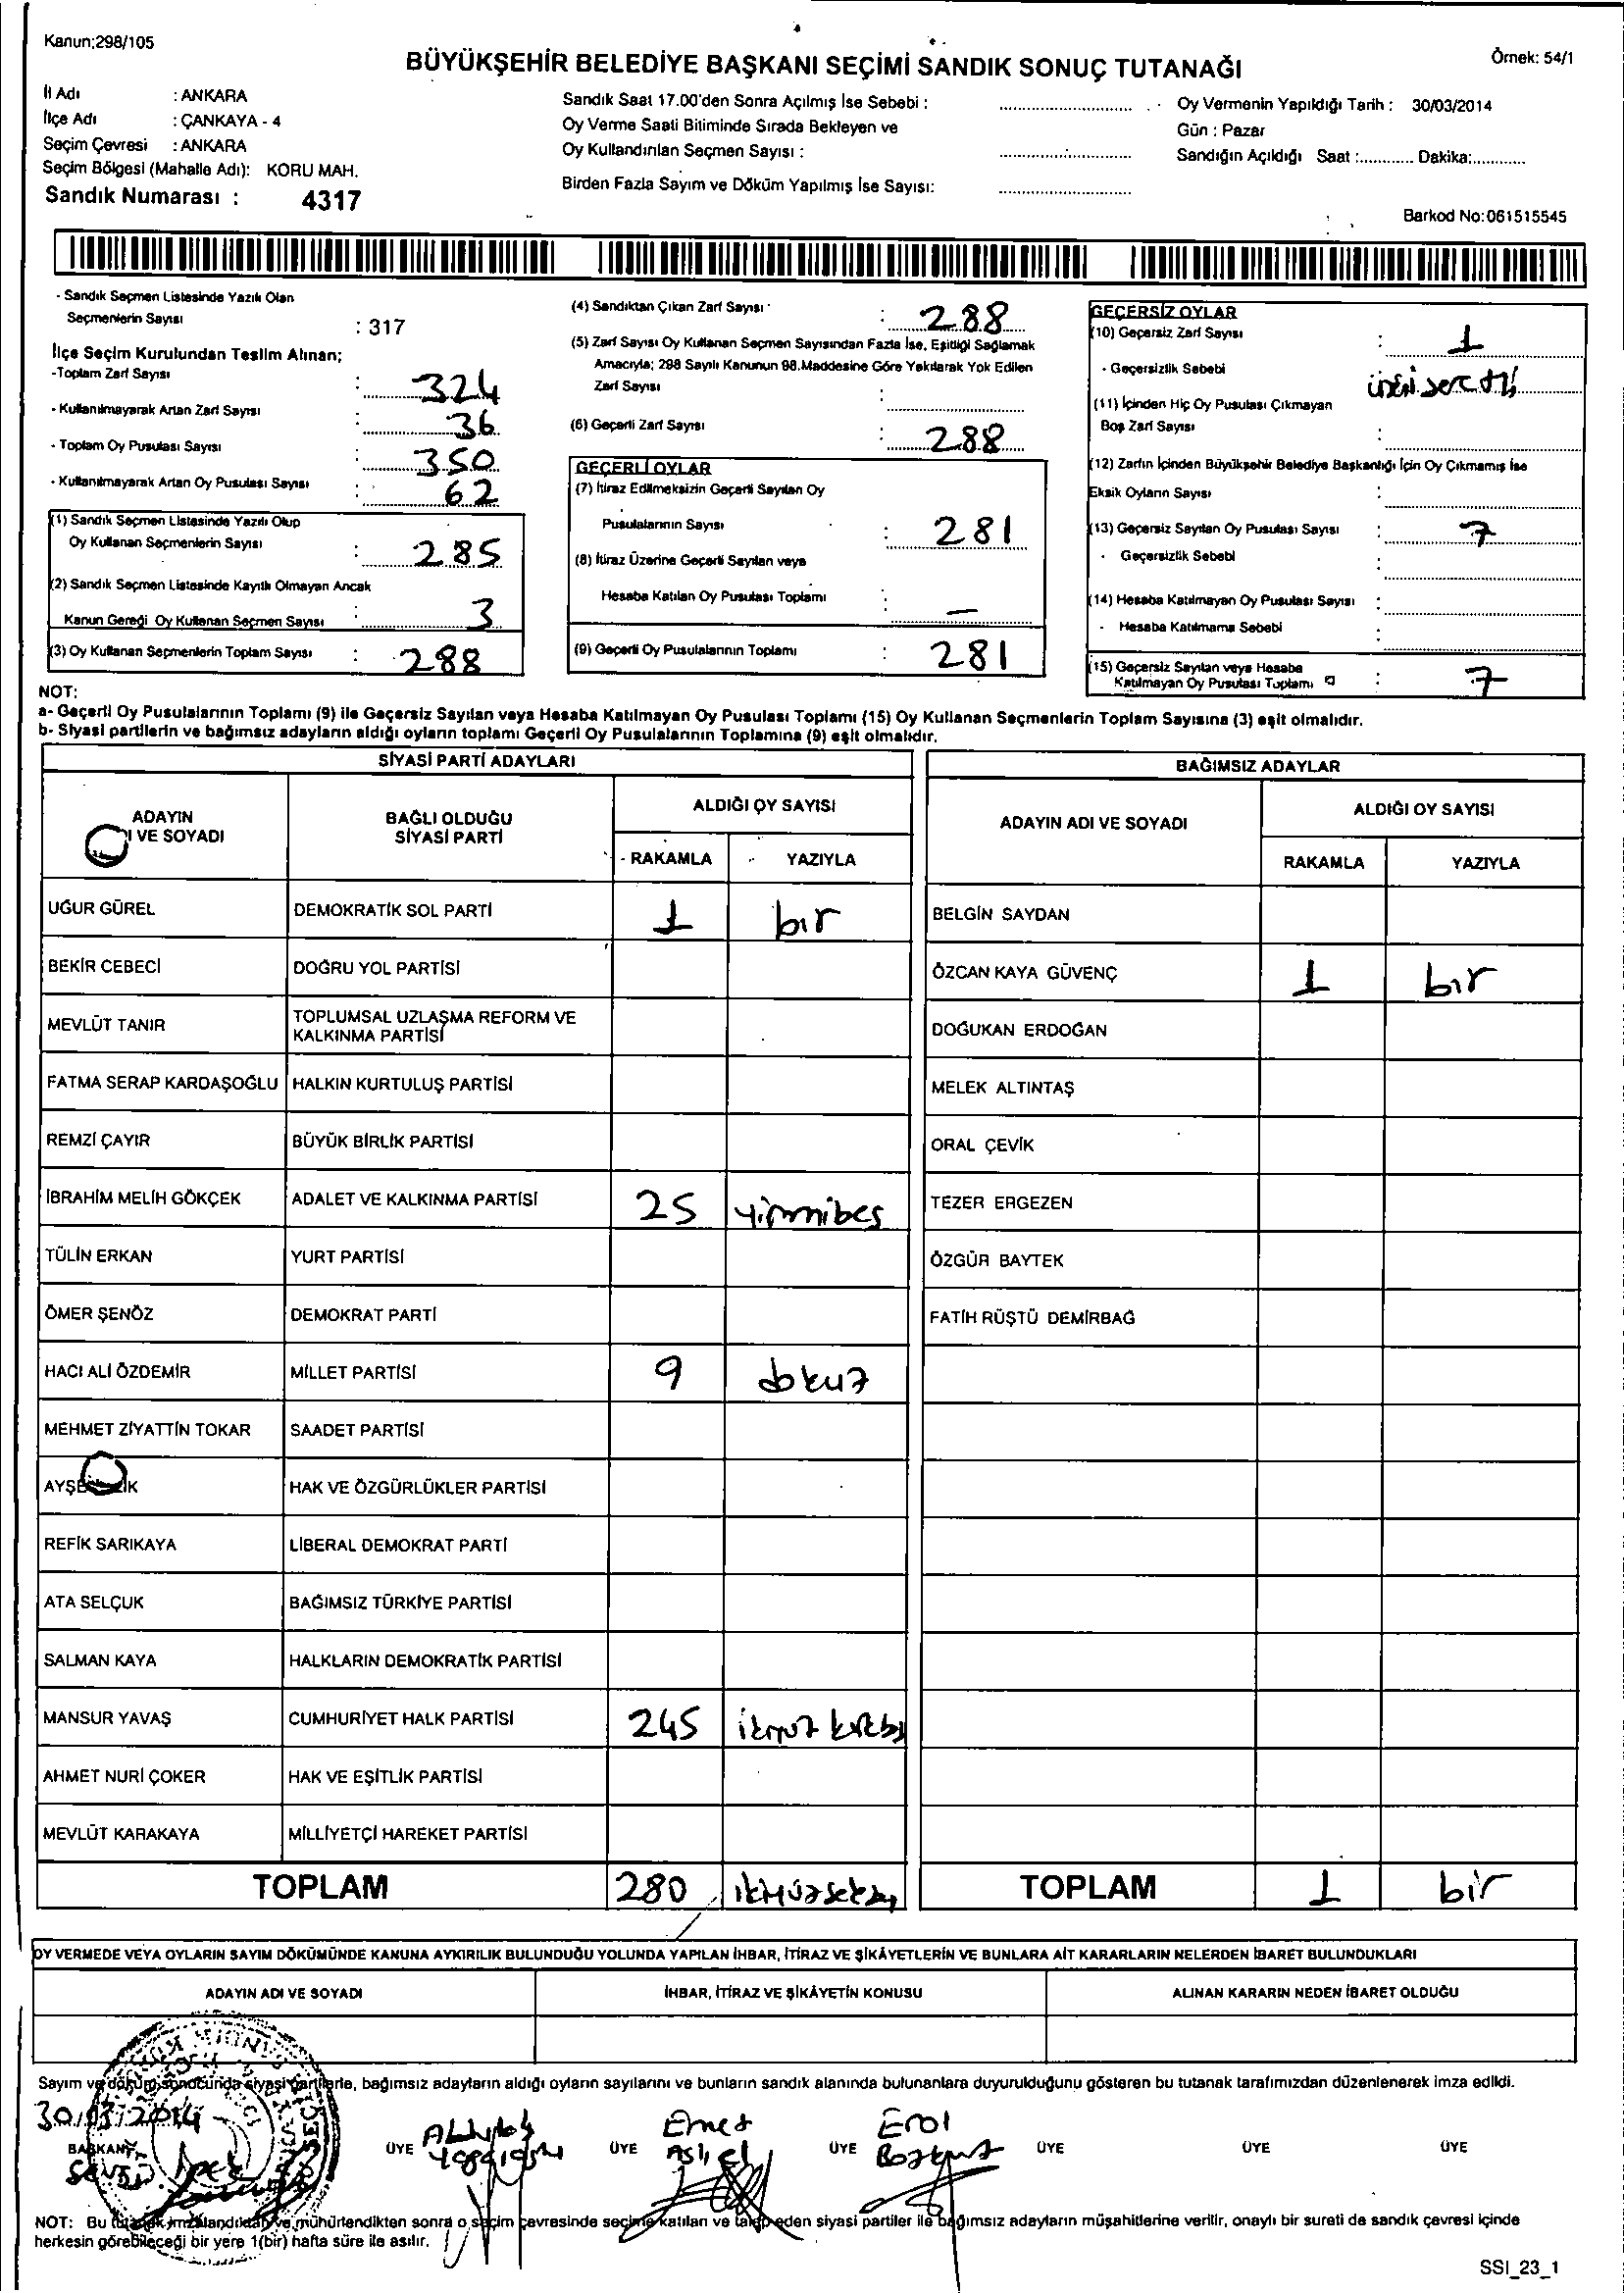 Kanun;298/105
BÜYÜKŞEHİR BELEDİYE BAŞKANI SEÇİMİ SANDIK SONUÇ TUTANAĞI
Örnek: 54/1
İl Adı : ANKARA
İlçe Adı : ÇANKAYA - 4
Seçim Çevresi : ANKARA
Seçim Bölgesi (Mahalle Adı): KORU MAH.
Sandık Numarası : 4317
Sandık Saat 17.00'den Sonra Açılmış İse Sebebi :
Oy Verme Saati Bitiminde Sırada Bekleyen ve
Oy Kullandırılan Seçmen Sayısı :
Birden Fazla Sayım ve Döküm Yapılmış İse Sayısı:
Oy Vermenin Yapıldığı Tarih : 30/03/2014
Gün : Pazar
Sandığın Açıldığı Saat :............ Dakika:............
Barkod No:061515545
- Sandık Seçmen Listesinde Yazılı Olan
Seçmenlerin Sayısı : 317
İlçe Seçim Kurulundan Teslim Alınan;
-Toplam Zarf Sayısı : 324
- Kullanılmayarak Artan Zarf Sayısı : 36
- Toplam Oy Pusulası Sayısı : 350
- Kullanılmayarak Artan Oy Pusulası Sayısı : 62
(1) Sandık Seçmen Listesinde Yazılı Olup
Oy Kullanan Seçmenlerin Sayısı : 285
(2) Sandık Seçmen Listesinde Kayıtlı Olmayan Ancak
Kanun Gereği Oy Kullanan Seçmen Sayısı : 3
(3) Oy Kullanan Seçmenlerin Toplam Sayısı : 288
(4) Sandıktan Çıkan Zarf Sayısı : 288
(5) Zarf Sayısı Oy Kullanan Seçmen Sayısından Fazla İse, Eşitliği Sağlamak
Amacıyla; 298 Sayılı Kanunun 98.Maddesine Göre Yakılarak Yok Edilen
Zarf Sayısı :
(6) Geçerli Zarf Sayısı : 288
GEÇERLİ OYLAR
(7) İtiraz Edilmeksizin Geçerli Sayılan Oy
Pusulalarının Sayısı : 281
(8) İtiraz Üzerine Geçerli Sayılan veya
Hesaba Katılan Oy Pusulası Toplamı : —
(9) Geçerli Oy Pusulalarının Toplamı : 281
GEÇERSİZ OYLAR
(10) Geçersiz Zarf Sayısı : 1
- Geçersizlik Sebebi
(11) İçinden Hiç Oy Pusulası Çıkmayan
Boş Zarf Sayısı :
(12) Zarfın İçinden Büyükşehir Belediye Başkanlığı İçin Oy Çıkmamış İse
Eksik Oyların Sayısı :
(13) Geçersiz Sayılan Oy Pusulası Sayısı : 7
- Geçersizlik Sebebi :
(14) Hesaba Katılmayan Oy Pusulası Sayısı :
- Hesaba Katılmama Sebebi :
(15) Geçersiz Sayılan veya Hesaba
Katılmayan Oy Pusulası Toplamı : 7
NOT:
a- Geçerli Oy Pusulalarının Toplamı (9) ile Geçersiz Sayılan veya Hesaba Katılmayan Oy Pusulası Toplamı (15) Oy Kullanan Seçmenlerin Toplam Sayısına (3) eşit olmalıdır.
b- Siyasi partilerin ve bağımsız adayların aldığı oyların toplamı Geçerli Oy Pusulalarının Toplamına (9) eşit olmalıdır.
SİYASİ PARTİ ADAYLARI
ADAYIN
I VE SOYADI
BAĞLI OLDUĞU
SİYASİ PARTİ
ALDIĞI OY SAYISI
RAKAMLA YAZIYLA
UĞUR GÜREL DEMOKRATİK SOL PARTİ 1 bır
BEKİR CEBECİ DOĞRU YOL PARTİSİ
MEVLÜT TANIR TOPLUMSAL UZLAŞMA REFORM VE
KALKINMA PARTİSİ
FATMA SERAP KARDAŞOĞLU HALKIN KURTULUŞ PARTİSİ
REMZİ ÇAYIR BÜYÜK BİRLİK PARTİSİ
İBRAHİM MELİH GÖKÇEK ADALET VE KALKINMA PARTİSİ 25 yirmibeş
TÜLİN ERKAN YURT PARTİSİ
ÖMER ŞENÖZ DEMOKRAT PARTİ
HACI ALİ ÖZDEMİR MİLLET PARTİSİ 9 dokuz
MEHMET ZİYATTİN TOKAR SAADET PARTİSİ
HAK VE ÖZGÜRLÜKLER PARTİSİ
REFİK SARIKAYA LİBERAL DEMOKRAT PARTİ
ATA SELÇUK BAĞIMSIZ TÜRKİYE PARTİSİ
SALMAN KAYA HALKLARIN DEMOKRATİK PARTİSİ
MANSUR YAVAŞ CUMHURİYET HALK PARTİSİ 245
AHMET NURİ ÇOKER HAK VE EŞİTLİK PARTİSİ
MEVLÜT KARAKAYA MİLLİYETÇİ HAREKET PARTİSİ
TOPLAM 280
BAĞIMSIZ ADAYLAR
ADAYIN ADI VE SOYADI
ALDIĞI OY SAYISI
RAKAMLA YAZIYLA
BELGİN SAYDAN
ÖZCAN KAYA GÜVENÇ 1 bır
DOĞUKAN ERDOĞAN
MELEK ALTINTAŞ
ORAL ÇEVİK
TEZER ERGEZEN
ÖZGÜR BAYTEK
FATİH RÜŞTÜ DEMİRBAĞ
TOPLAM 1 bir
OY VERMEDE VEYA OYLARIN SAYIM DÖKÜMÜNDE KANUNA AYKIRILIK BULUNDUĞU YOLUNDA YAPILAN İHBAR, İTİRAZ VE ŞİKÂYETLERİN VE BUNLARA AİT KARARLARIN NELERDEN İBARET BULUNDUKLARI
ADAYIN ADI VE SOYADI İHBAR, İTİRAZ VE ŞİKÂYETİN KONUSU ALINAN KARARIN NEDEN İBARET OLDUĞU
Sayım ve döküm sonucunda siyasi partilerle, bağımsız adayların aldığı oyların sayılarını ve bunların sandık alanında bulunanlara duyurulduğunu gösteren bu tutanak tarafımızdan düzenlenerek imza edildi.
30/03/2014
BAŞKAN ÜYE ÜYE Emes Aslıel ÜYE Erol Bozkurt ÜYE ÜYE ÜYE
NOT: Bu tutanak imzalandıktan ve mühürlendikten sonra o seçim çevresinde seçime katılan ve talep eden siyasi partiler ile bağımsız adayların müşahitlerine verilir, onaylı bir sureti de sandık çevresi içinde
herkesin görebileceği bir yere 1(bir) hafta süre ile asılır.
SSI_23_1